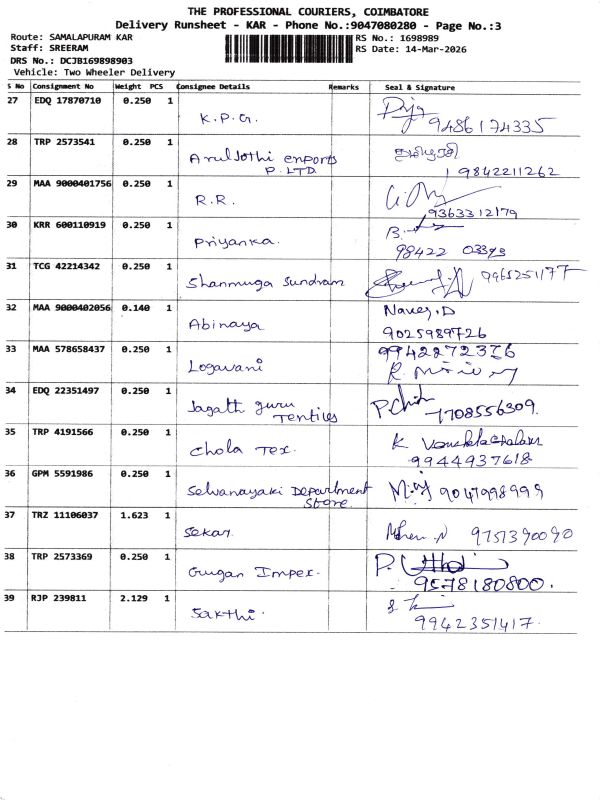 THE PROFESSIONAL COURIERS, COIMBATORE
Delivery Runsheet - KAR - Phone No.:9047080280 - Page No.:3
Route: SAMALAPURAM KAR RS No.: 1698989
Staff: SREERAM RS Date: 14-Mar-2026
DRS No.: DCJB169898903
Vehicle: Two Wheeler Delivery
S No Consignment No Weight PCS Consignee Details Remarks Seal & Signature
27 EDQ 17870710 0.250 1
K.P.G. 9486174335
28 TRP 2573541 0.250 1
Arul Jothi exports
P.LTD. 9842211262
29 MAA 9000401756 0.250 1
R.R. 9363312179
30 KRR 600110919 0.250 1
Priyanka. 98422
31 TCG 42214342 0.250 1
Shanmuga Sundram 9965251177
32 MAA 9000402056 0.140 1 Naveen.D
Abinaya 9025989726
33 MAA 578658437 0.250 1 9942272376
Logavani
34 EDQ 22351497 0.250 1
Jagath guru 7708556309.
Textiles
35 TRP 4191566 0.250 1 K Venchatachalam
Chola Tex. 9944937618
36 GPM 5591986 0.250 1
Selvanayaki Department 9047998999
Store.
37 TRZ 11106037 1.623 1
Sekar. 9751390090
38 TRP 2573369 0.250 1
Gugan Impex. 9578180800.
39 RJP 239811 2.129 1
Sakthi. 9942351417.